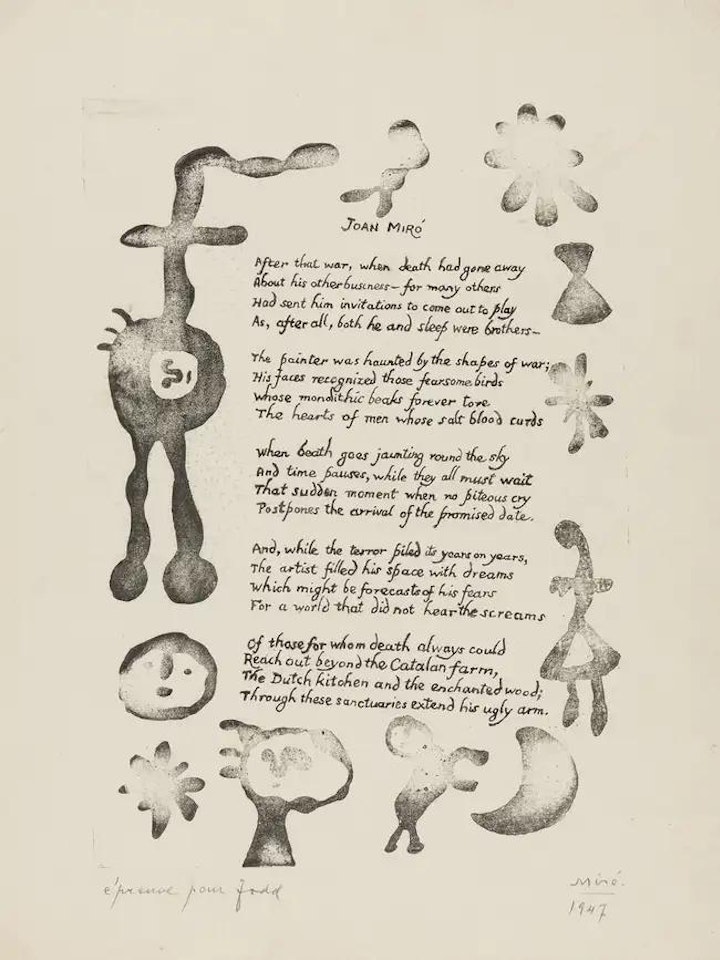 JOAN MIRÓ
After that war, when death had gone away
About his other business — for many others
Had sent him invitations to come out to play
As, after all, both he and sleep were brothers —
The painter was haunted by the shapes of war;
His faces recognized those fearsome birds
Whose monolithic beaks forever tore
The hearts of men whose salt blood curds
When death goes jaunting round the sky
And time pauses, while they all must wait
That sudden moment when no piteous cry
Postpones the arrival of the promised date.
And, while the terror piled its years on years,
The artist filled his space with dreams
Which might be forecasts of his fears
For a world that did not hear the screams
Of those for whom death always could
Reach out beyond the Catalan farm,
The Dutch kitchen and the enchanted wood;
Through these sanctuaries extend his ugly arm.
épreuve pour Jodd
Miró.
1947